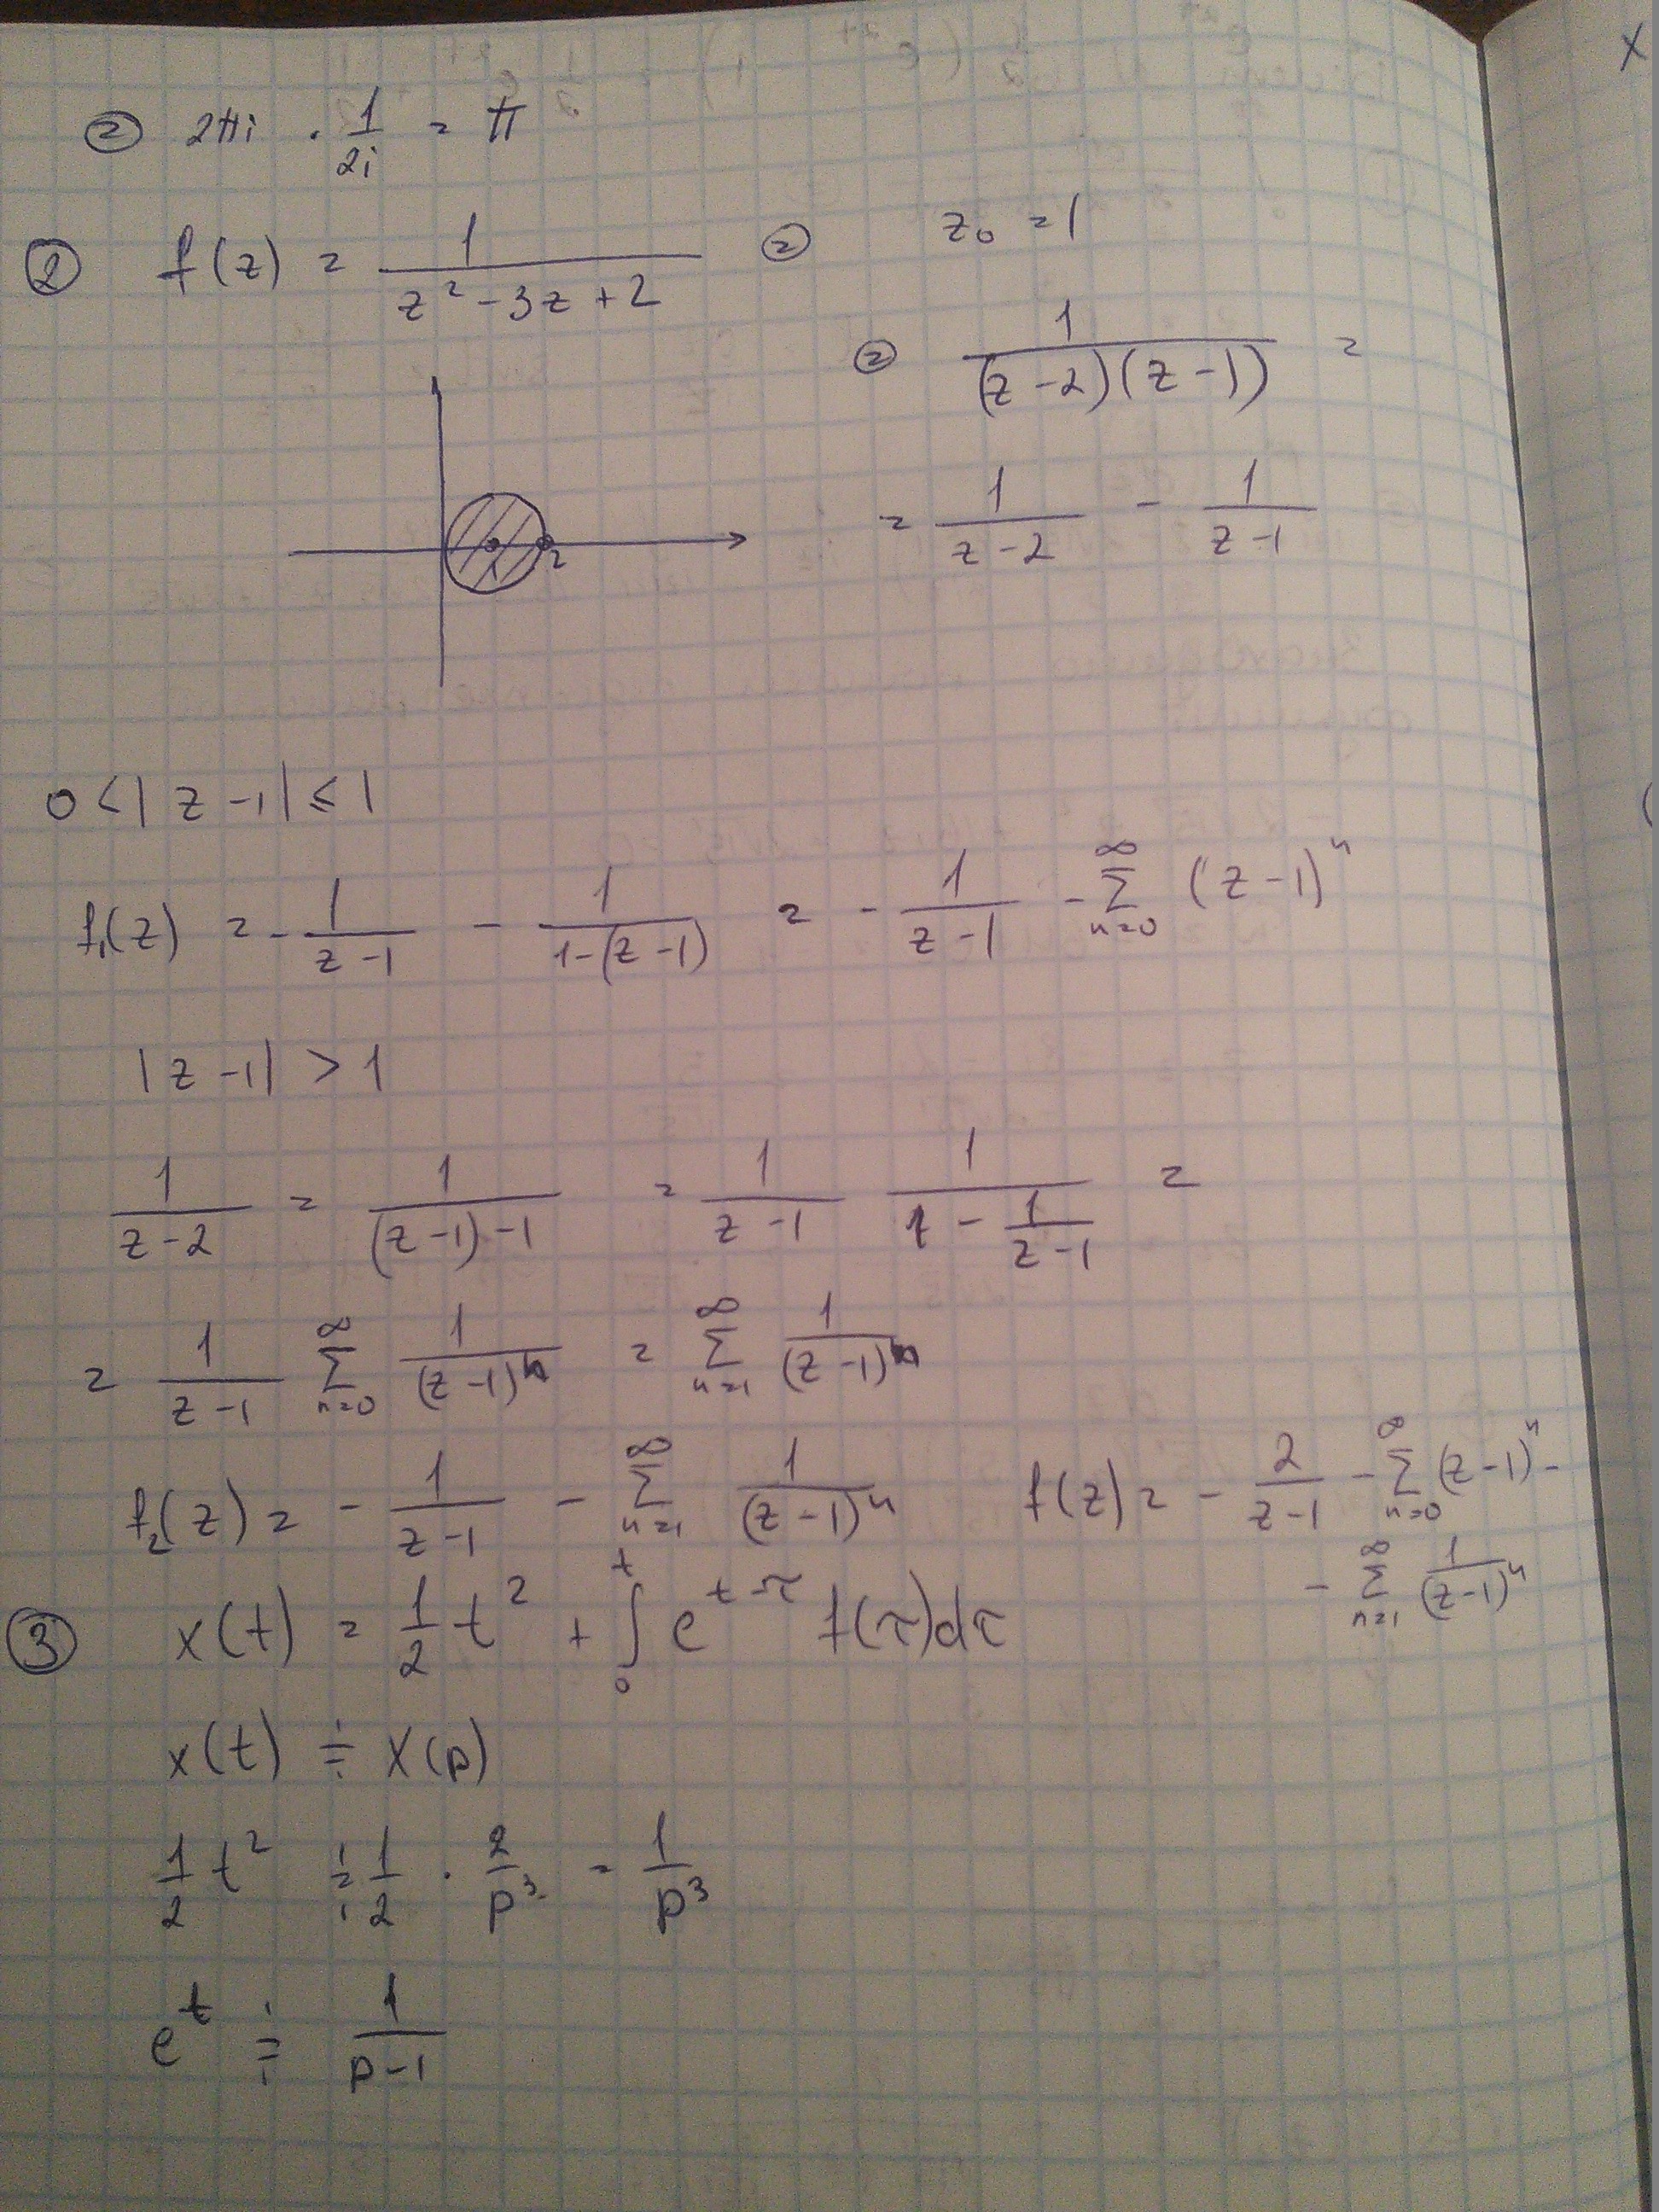 ⊜ 2πi · 1/2i = π
② f(z) = 1/(z² - 3z + 2) ⊜ z₀ = 1
⊜ 1/((z-2)(z-1)) =
= 1/(z-2) - 1/(z-1)
1 2
0 < |z-1| ≤ 1
f₁(z) = - 1/(z-1) - 1/(1-(z-1)) = - 1/(z-1) - ∑_{n=0}^{∞} (z-1)ⁿ
|z-1| > 1
1/(z-2) = 1/((z-1)-1) = 1/(z-1) 1/(1 - 1/(z-1)) =
= 1/(z-1) ∑_{n=0}^{∞} 1/(z-1)ⁿ = ∑_{n=1}^{∞} 1/(z-1)ⁿ
f₂(z) = - 1/(z-1) - ∑_{n=1}^{∞} 1/(z-1)ⁿ
f(z) = - 2/(z-1) - ∑_{n=0}^{∞} (z-1)ⁿ -
- ∑_{n=1}^{∞} 1/(z-1)ⁿ
③ x(t) = 1/2 t² + ∫₀ᵗ e^{t-τ} f(τ)dτ
x(t) ≑ X(p)
1/2 t² ≑ 1/2 · 2/p³ = 1/p³
eᵗ ≑ 1/(p-1)